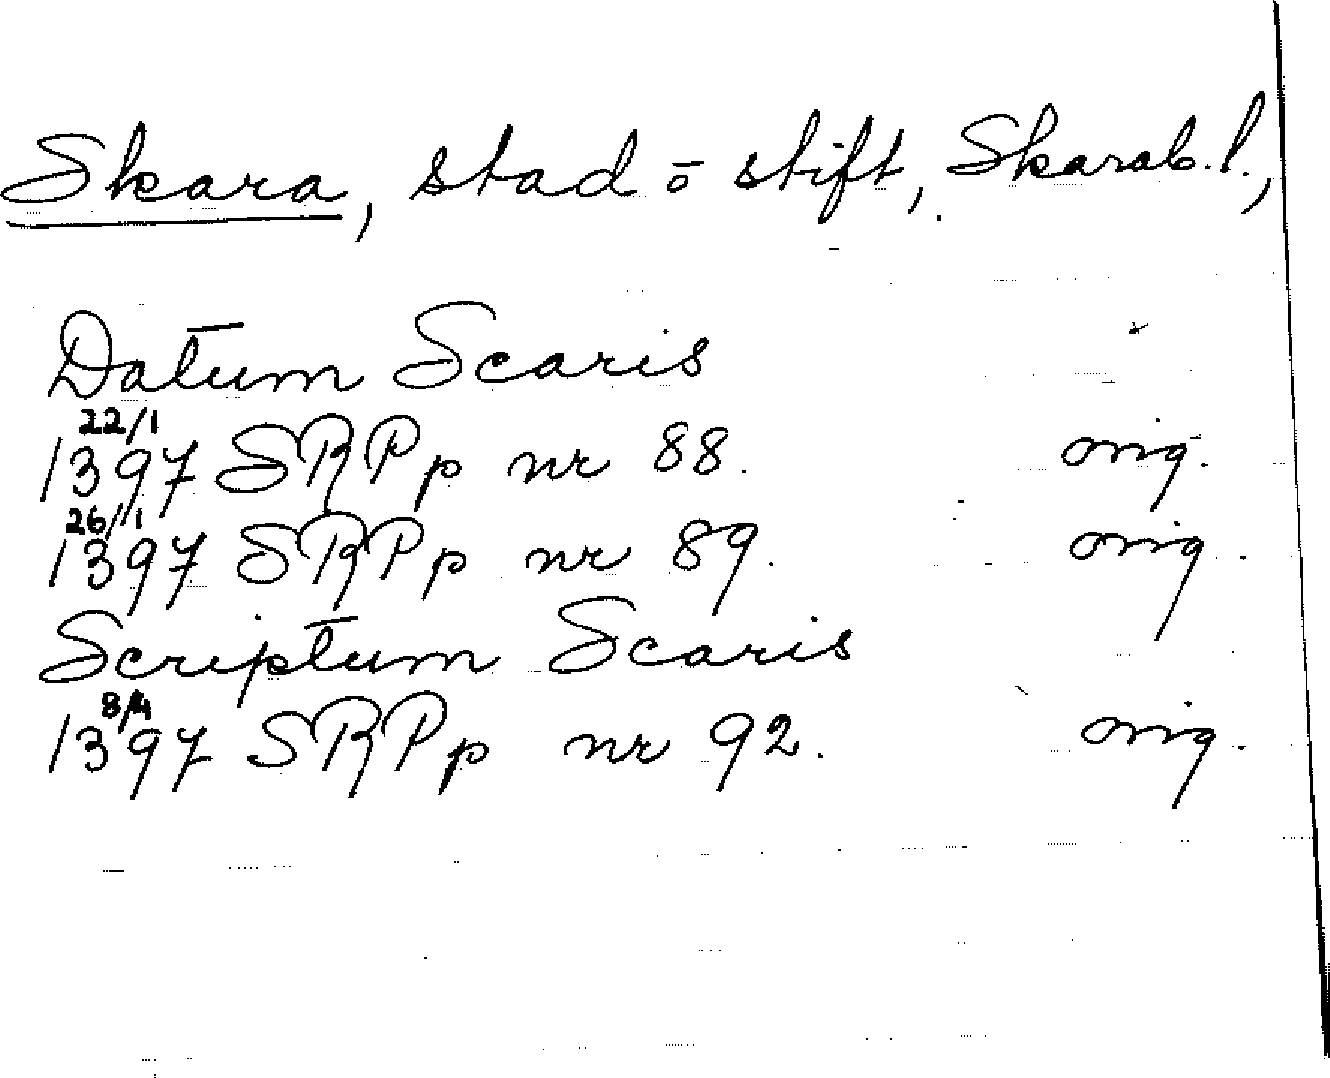 Skara, stad ō stift, Skarab.l.,
Datum Scaris
22/1
1397 SRPp nr 88. orig.
26/1
1397 SRPp nr 89. orig.
Scriptum Scaris
8/4
1397 SRPp nr 92. orig.